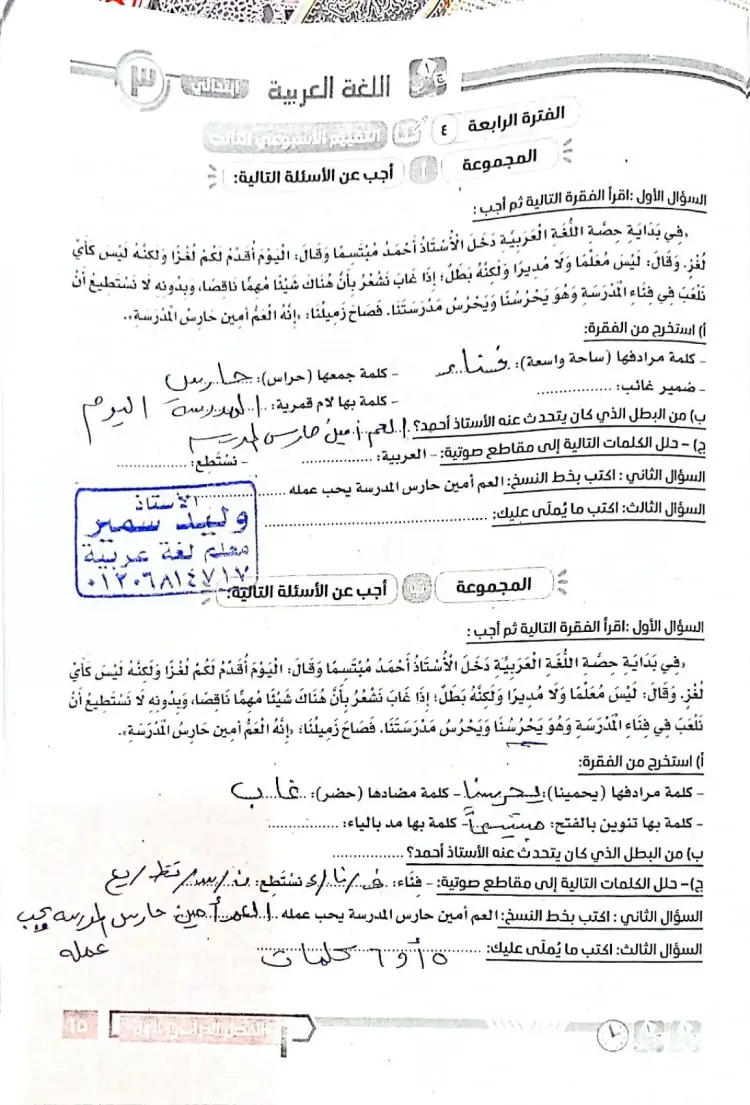 اللغة العربية
٣ ابتدائي
الفترة الرابعة ٤ التقييم الأسبوعي الثالث
المجموعة أ أجب عن الأسئلة التالية:
السؤال الأول :اقرأ الفقرة التالية ثم أجب :
«فِي بَدَايَةِ حِصَّةِ اللُّغَةِ الْعَرَبِيَّةِ دَخَلَ الْأُسْتَاذُ أَحْمَدُ مُبْتَسِمًا وَقَالَ: الْيَوْمَ أُقَدِّمُ لَكُمْ لُغْزًا وَلَكِنَّهُ لَيْسَ كَأَيِّ
لُغْزٍ. وَقَالَ: لَيْسَ مُعَلِّمًا وَلَا مُدِيرًا وَلَكِنَّهُ بَطَلٌ؛ إِذَا غَابَ نَشْعُرُ بِأَنَّ هُنَاكَ شَيْئًا مُهِمًّا نَاقِصًا، وَبِدُونِهِ لَا نَسْتَطِيعُ أَنْ
نَلْعَبَ فِي فِنَاءِ الْمَدْرَسَةِ وَهُوَ يَحْرُسُنَا وَيَحْرُسُ مَدْرَسَتَنَا. فَصَاحَ زَمِيلُنَا: «إِنَّهُ الْعَمُّ أَمِين حَارِسُ الْمَدْرَسَةِ».
أ) استخرج من الفقرة:
- كلمة مرادفها (ساحة واسعة): فناء - كلمة جمعها (حراس): حارس
- ضمير غائب: .................. - كلمة بها لام قمرية: المدرسة اليوم
ب) من البطل الذي كان يتحدث عنه الأستاذ أحمد؟ العم أمين حارس المدرسة
ج) - حلل الكلمات التالية إلى مقاطع صوتية: - العربية: .................. - نستطع: ..................
السؤال الثاني : اكتب بخط النسخ: العم أمين حارس المدرسة يحب عمله ..................
السؤال الثالث: اكتب ما يُملَى عليك: ..................
الأستاذ
وليد سمير
معلم لغة عربية
٠١٢٠٦٨١٤٧١٧
المجموعة ب أجب عن الأسئلة التالية:
السؤال الأول: اقرأ الفقرة التالية ثم أجب :
«فِي بَدَايَةِ حِصَّةِ اللُّغَةِ الْعَرَبِيَّةِ دَخَلَ الْأُسْتَاذُ أَحْمَدُ مُبْتَسِمًا وَقَالَ: الْيَوْمَ أُقَدِّمُ لَكُمْ لُغْزًا وَلَكِنَّهُ لَيْسَ كَأَيِّ
لُغْزٍ. وَقَالَ: لَيْسَ مُعَلِّمًا وَلَا مُدِيرًا وَلَكِنَّهُ بَطَلٌ؛ إِذَا غَابَ نَشْعُرُ بِأَنَّ هُنَاكَ شَيْئًا مُهِمًّا نَاقِصًا، وَبِدُونِهِ لَا نَسْتَطِيعُ أَنْ
نَلْعَبَ فِي فِنَاءِ الْمَدْرَسَةِ وَهُوَ يَحْرُسُنَا وَيَحْرُسُ مَدْرَسَتَنَا. فَصَاحَ زَمِيلُنَا: «إِنَّهُ الْعَمُّ أَمِين حَارِسُ الْمَدْرَسَةِ».
أ) استخرج من الفقرة:
- كلمة مرادفها (يحمينا): يحرسنا - كلمة مضادها (حضر): غاب
- كلمة بها تنوين بالفتح: مبتسماً - كلمة بها مد بالياء: ..................
ب) من البطل الذي كان يتحدث عنه الأستاذ أحمد؟ ..................
ج)- حلل الكلمات التالية إلى مقاطع صوتية: - فِنَاء: فـ/نا/ء نستطع: نـ/ستـ/تطـ/ـيع
السؤال الثاني : اكتب بخط النسخ: العم أمين حارس المدرسة يحب عمله العم أمين حارس المدرسة يحب
عمله
السؤال الثالث: اكتب ما يُملَى عليك: ٥ أو ٦ كلمات
١٥